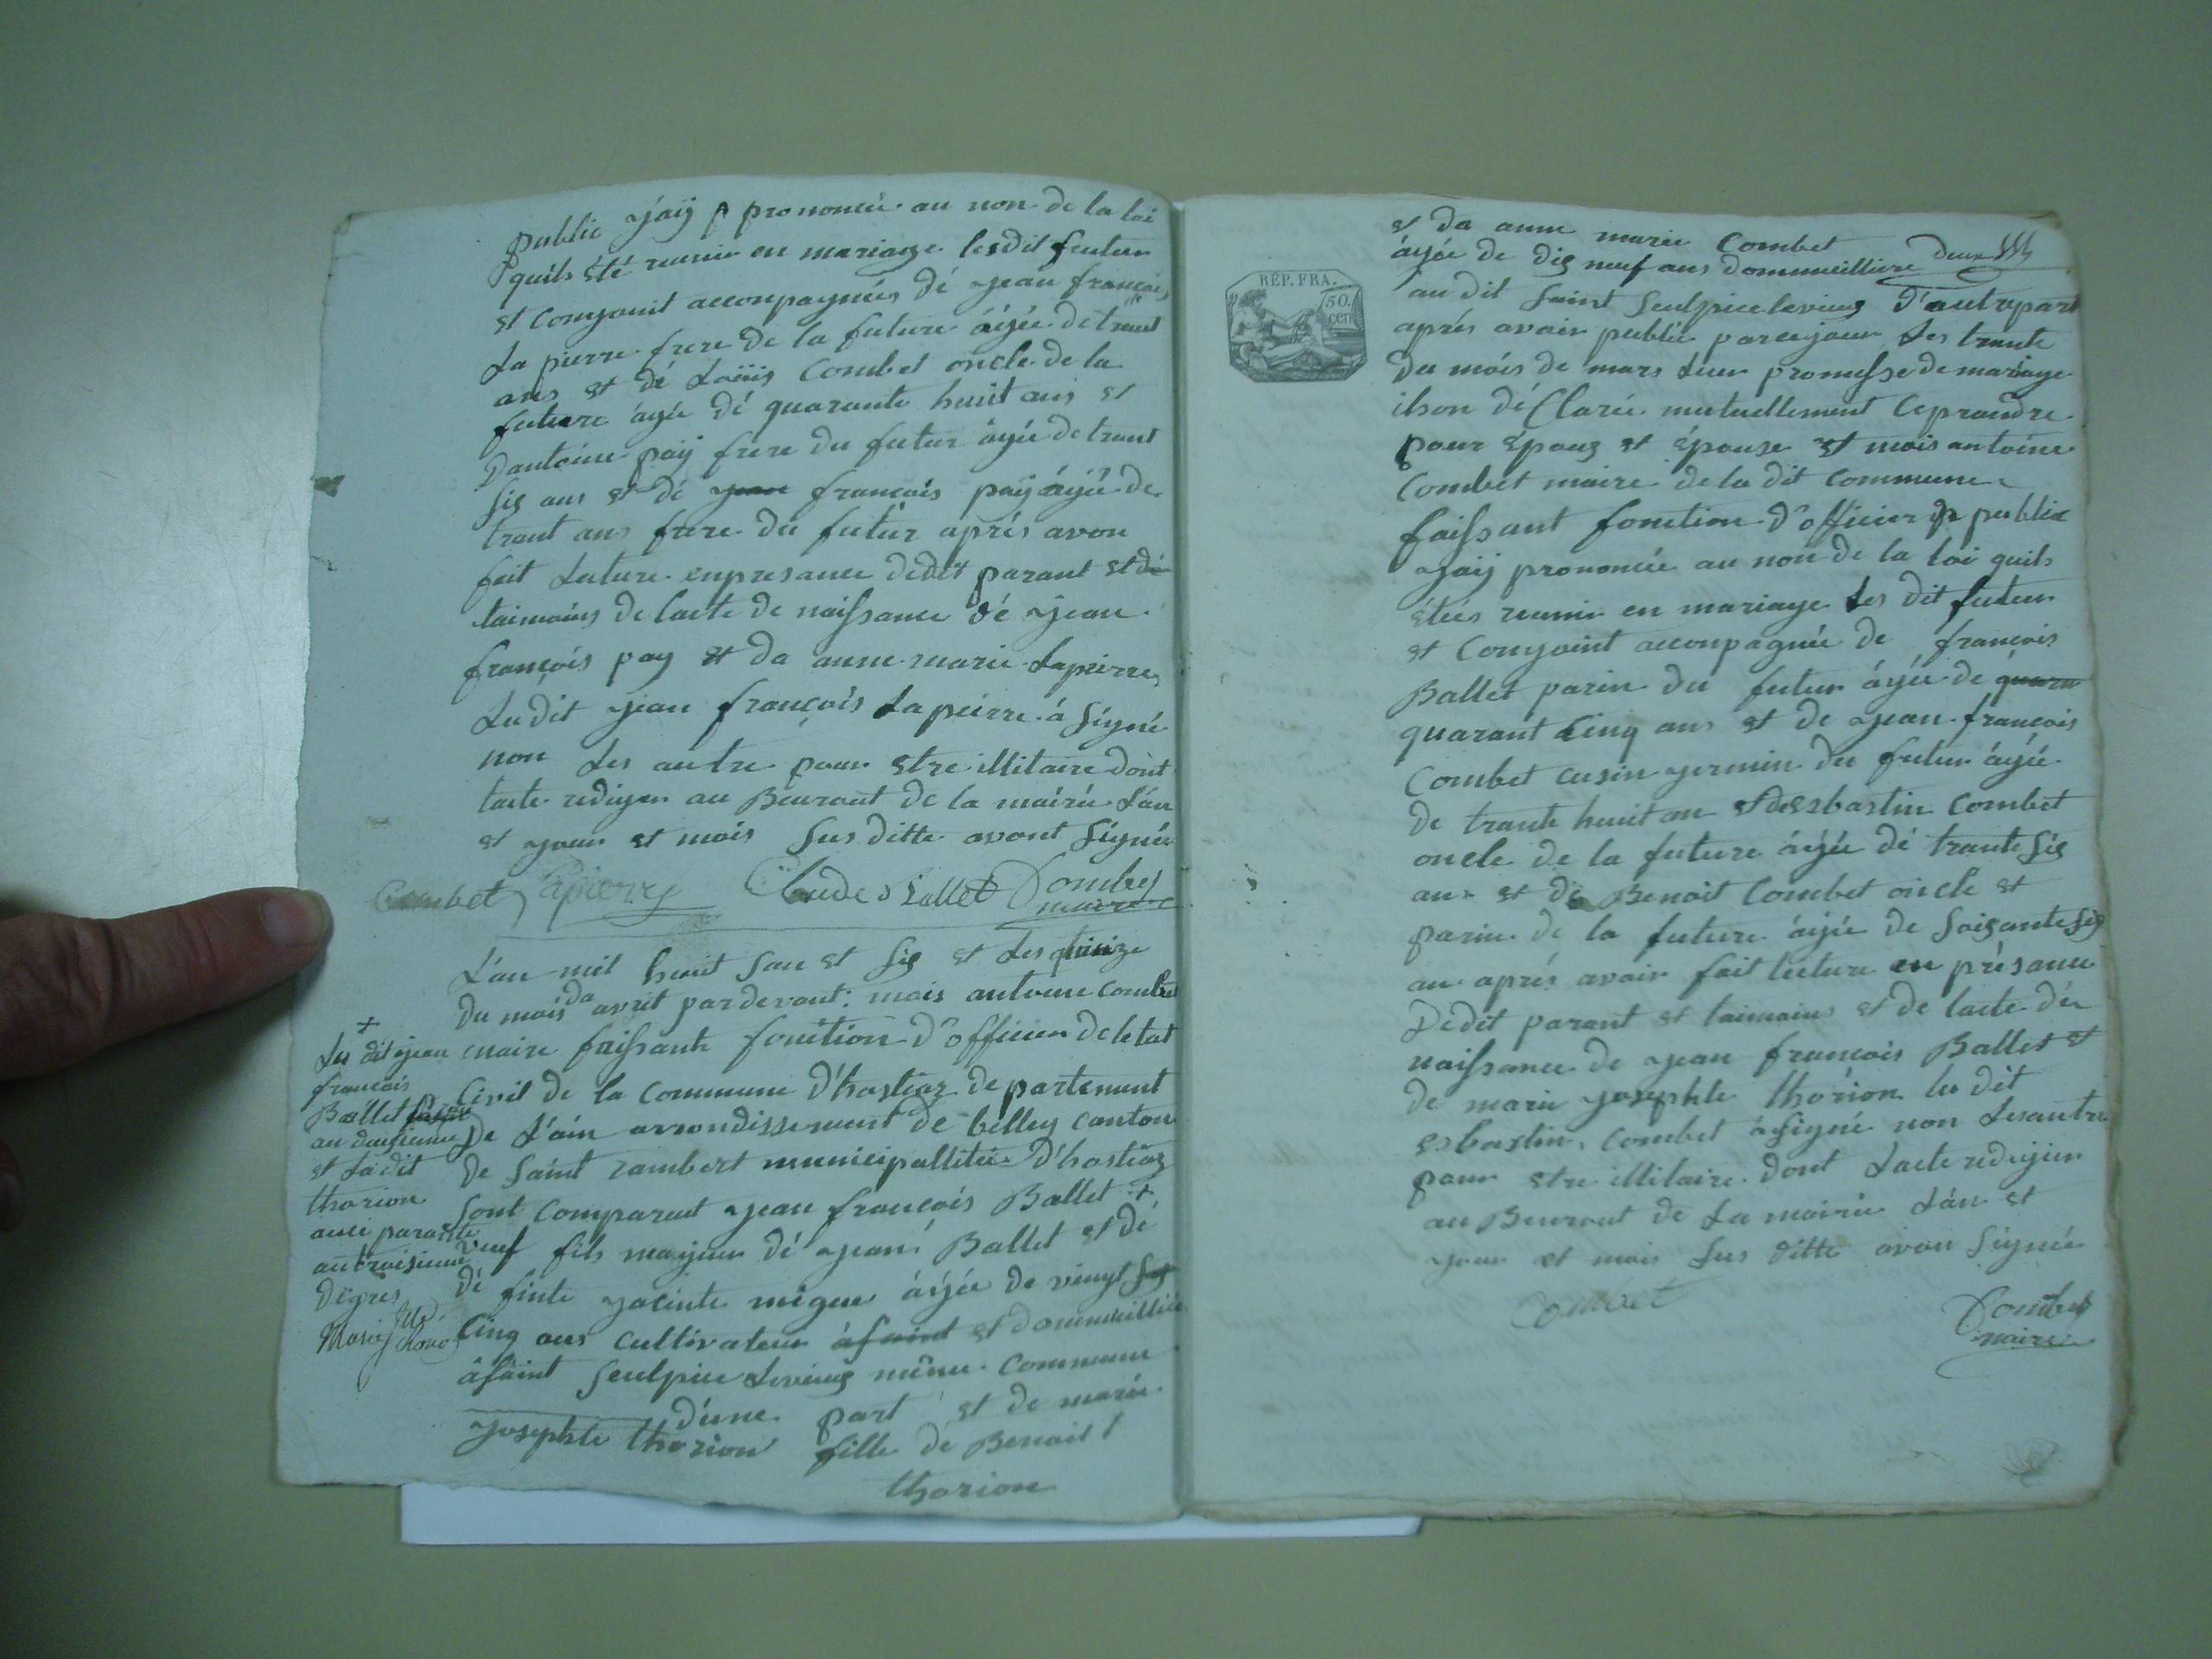 public jaÿ prononcée au non de la loi
quils été reunir en mariage lesdit feuteur
et conjoint acconpagnées dé jean francois
La pierre frere de la future âgée de trant
ans et dé Loüis Combet oncle de la
future âgée dé quarante huit ans et
Dantoine paÿ frere du futur âgée de trant
sis ans et dé jean francois paÿ âgée de
trant ans frere du futur après avoir
fait Luture enpresance dedit parant et dé
taimoins de lacte de naissance dé jean
francois pay et da anne marie Lapierre
Ledit jean francois La peirre á signé
non les autre pour etre illitaire dont
lacte rediger au Beuraut de la mairie L'an
et jour et mois sus ditte avont signée
Combet Lapierre Claude Ballet Combet
maire
L'an mil huit san et sis et les quinze
du mois da avril pardevant mois antoine Combet
maire faissante fonition d'officier de letat
Civil de la Commune d'hostiaz departement
De L'ain arrondissement de belley canton
de saint rambert municipallitée d'hostiaz
sont Comparant jean francois Ballet +
veuf fils majeur dé jean Ballet et dé
dé finte jacinte migue âgée de vingt
Cinq ans cultivateur á saint et dommeillie
á saint seulpice Levieus même Commune
d'une part et de marie
josephte thorion fille de Benait
thorion
+
Le dit jean
francois
Ballet
au deusieme
et La dit
thorion
ausi parante
autroisieme
dégres
et da anne marie Combet
âgée de dis neuf ans dommeilliere
au dit saint seulpice levieus d'autrepart
aprés avoir publié par un jour Les trante
Du móis de mars leur promesse de mariage
ilson dé Clarée mutuellement ceprandre
pour épous et épouse et mois antoine
Combet maire de la dit Commune
faissant fonition d'officier public
jaij prononcée au non de la loi quils
étées reunir en mariage Les dit futur
et Conjoint acconpagnée de francois
Ballet parin du futur âgée dé quara
quarant Cinq ans et de jean francois
Combet cusin germin du futur âgée
de trante huit an et de esbastin Combet
oncle de la future âgée dé trante sis
ans et dé Benait Combet oncle et
parin de la future âgée de soisante sis
an aprés avoir fait lecture en présance
Dedit parant et taimoins et de lacte de
naissance de jean francois Ballet et
de marie josephte thorion le dit
esbastin Combet á signé non les autre
pour etre illitaire dont Lacte redigier
au Beuraut de La mairie L'an et
jour et mois sus ditte avon signée
Combet
Combet
maire
RÉP. FRA.
50.
cen